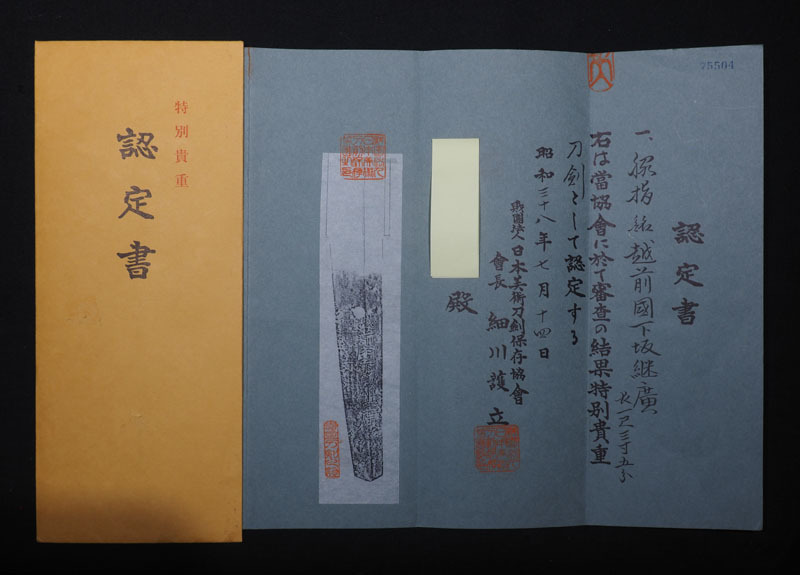 75504
認定書
一、脇指 銘 越前國下坂継廣
長一尺三寸五分
右は當協會に於て審査の結果特別貴重
刀剣として認定する
昭和三十八年七月十四日
財團法人日本美術刀剣保存協會
會長 細川護立
殿
特別貴重
認定書